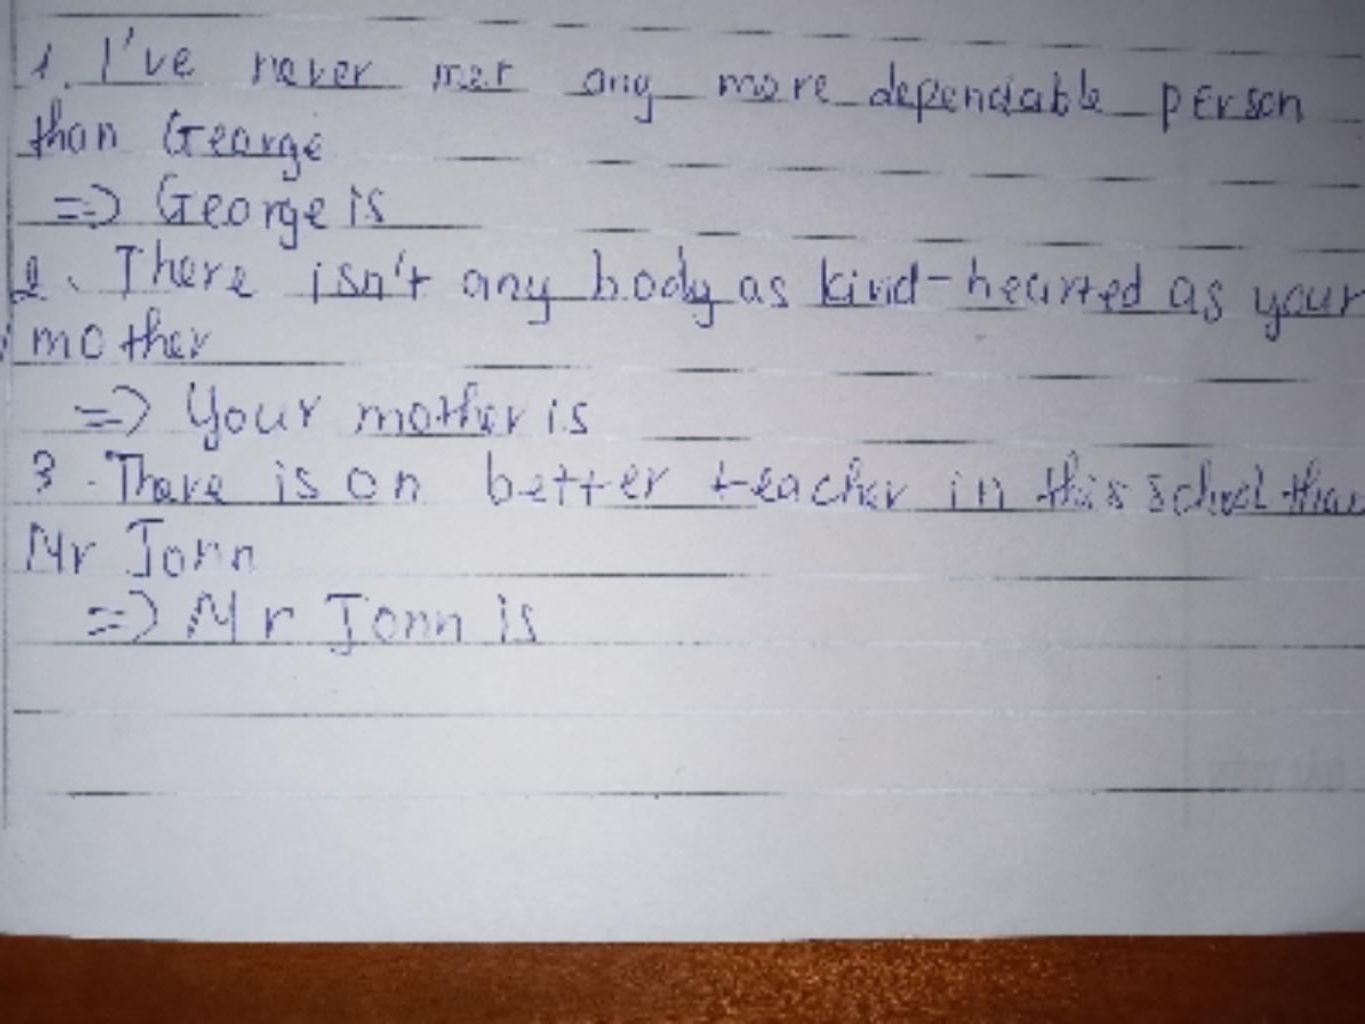 1. I've never met any more dependable person
than George
=> George is
2. There isn't any body as kind-hearted as your
mother
=> Your mother is
3. There is on better teacher in this school than
Mr John
=> Mr John is